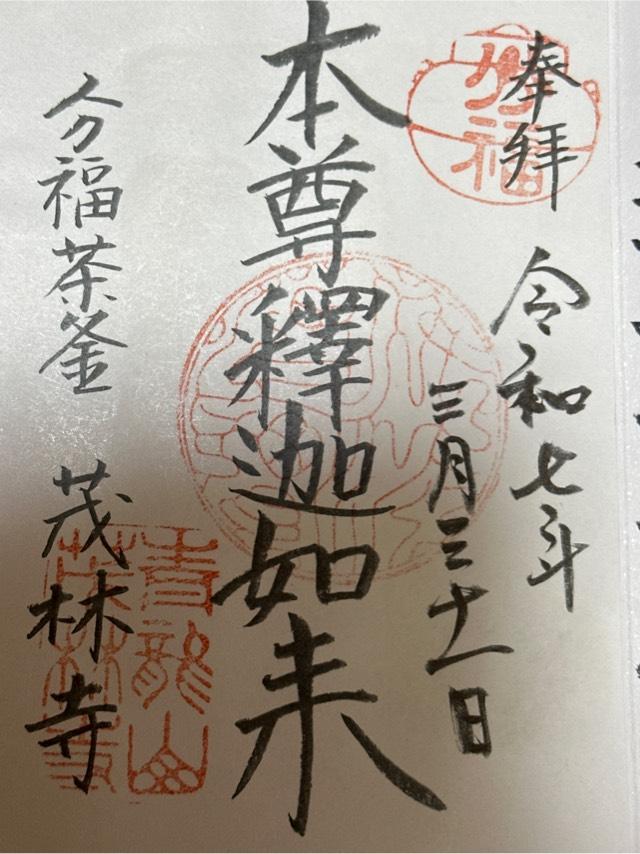 奉拝
令和七年
三月三十一日
本尊釋迦如来
分福茶釜　茂林寺
分福
青龍山
茂林寺